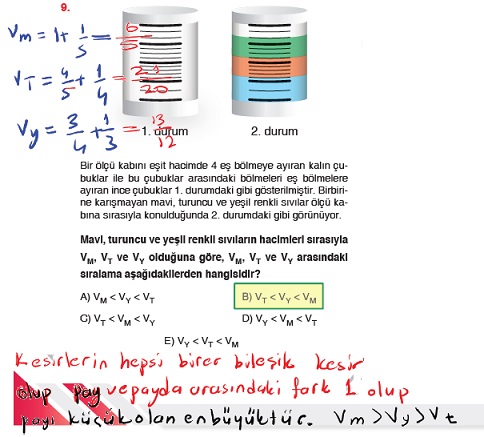 9.
Vm = 1 + 1/5 = 6/5
VT = 4/5 + 1/4 = 21/20
Vy = 3/4 + 1/3 = 13/12
1. durum
2. durum
Bir ölçü kabını eşit hacimde 4 eş bölmeye ayıran kalın çu-
buklar ile bu çubuklar arasındaki bölmeleri eş bölmelere
ayıran ince çubuklar 1. durumdaki gibi gösterilmiştir. Birbiri-
ne karışmayan mavi, turuncu ve yeşil renkli sıvılar ölçü ka-
bına sırasıyla konulduğunda 2. durumdaki gibi görünüyor.
Mavi, turuncu ve yeşil renkli sıvıların hacimleri sırasıyla
VM, VT ve VY olduğuna göre, VM, VT ve VY arasındaki
sıralama aşağıdakilerden hangisidir?
A) VM < VY < VT
B) VT < VY < VM
C) VT < VM < VY
D) VY < VM < VT
E) VY < VT < VM
Kesirlerin hepsi birer bileşik kesir
olup pay ve payda arasındaki fark 1 olup
payı küçük olan en büyüktür. Vm > Vy > Vt